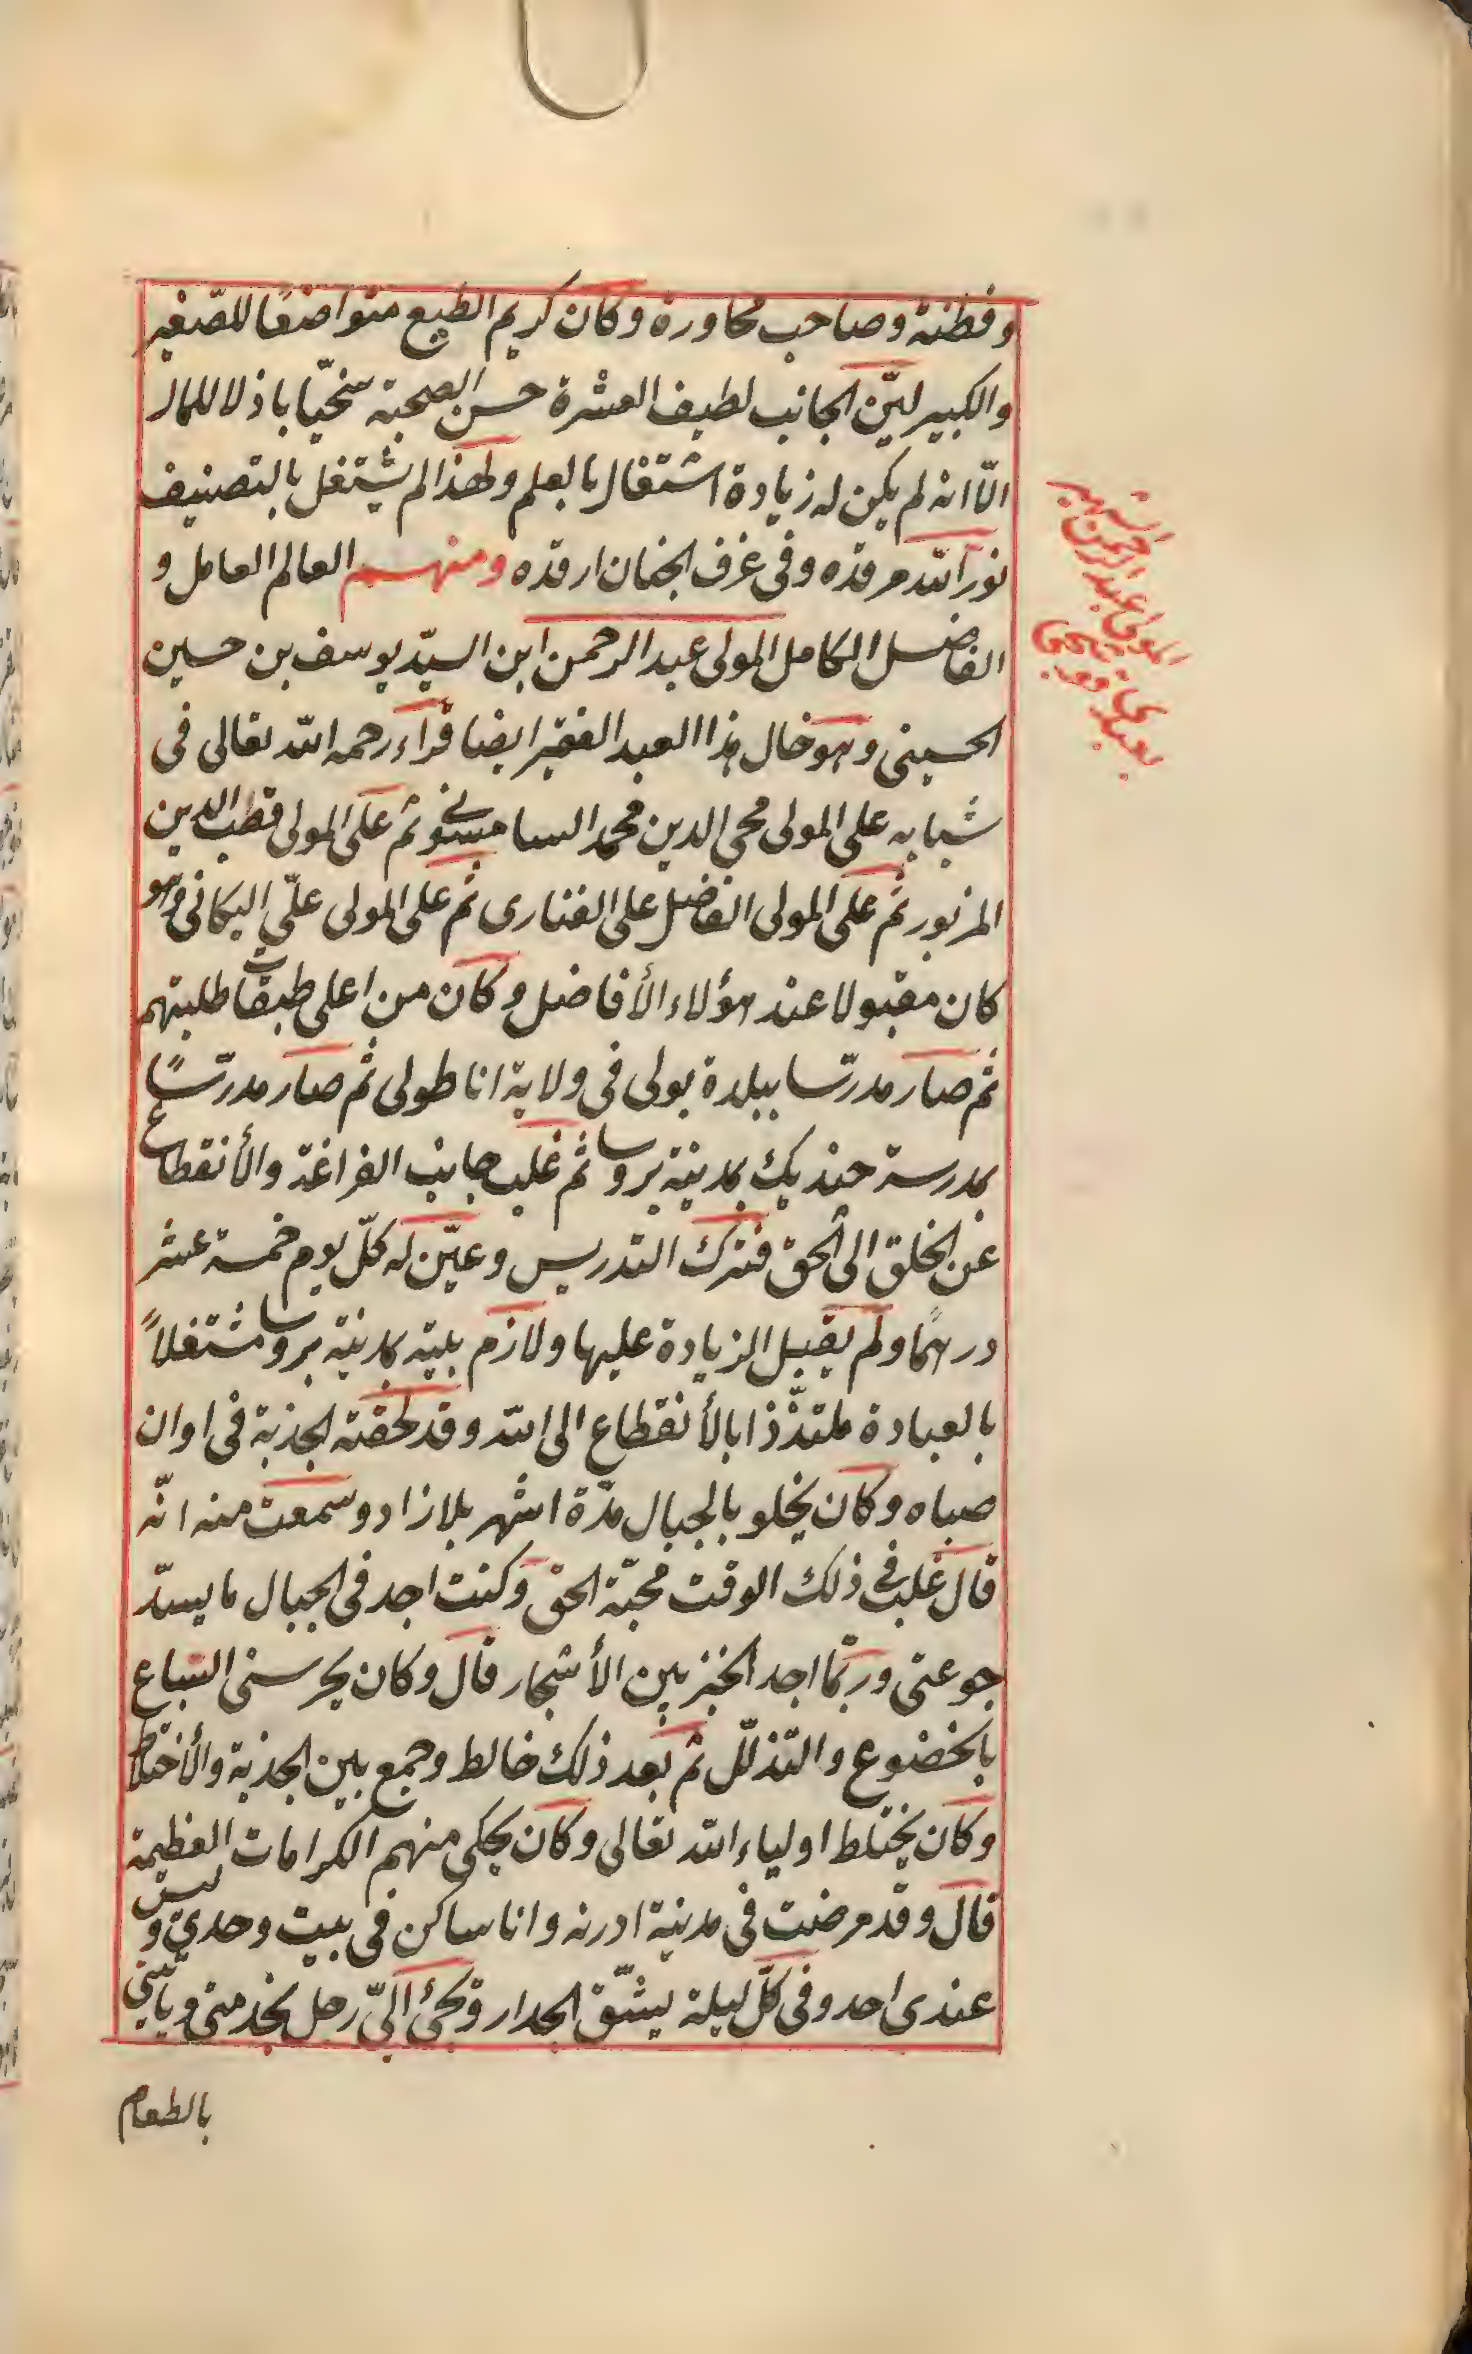 وفطنة وصاحب محاورة وكان كريم الطبع متواضعًا للصّغير
والكبير ليّن الجانب لطيف العشرة حسن الصحبة سخيّا باذلا للمال
الّا انه لم يكن له زيادة اشتغال بالعلم ولهذا لم يشتغل بالتصنيف
نور الله مرقده وفى غرف الجنان ارقده ومنهم العالم العامل و
الفاضل الكامل المولى عبد الرحمن ابن السيّد يوسف بن حسين
الحسينى وهو خال هذا العبد الفقير ايضا قرأ رحمه الله تعالى فى
شبابه على المولى محي الدين محمد السامسونى ثم على المولى قطب الدين
المزبور ثم على المولى الفاضل على الفنارى ثم على المولى علّى اليكانى وهو
كان مقبولا عند هؤلاء الأفاضل وكان من اعلى طبقات طلبتهم
ثم صار مدرّسا ببلدة بولى فى ولاية اناطولى ثم صار مدرّسًا
بمدرسة جنديك بمدينة بروسا ثم غلب جانب الفراغة والأنقطاع
عن الخلق الى الحق فترك التدريس وعيّن له كلّ يوم خمسة عشر
درهمًا ولم يقبل الزيادة عليها ولازم بيته بمدينة بروسا مشتغلاً
بالعبادة ملتذّذا بالأنقطاع الى الله وقد لحقته الجذبة فى اوان
صباه وكان يخلو بالجبال مدّة اشهر بلا زاد وسمعت منه انّه
قال غلب فى ذلك الوقت محبّة الحق وكنت اجد فى الجبال ما يسدّ
جوعتى وربّما اجد الخبز بين الأشجار قال وكان يحرسنى السّباع
بالخضوع والتذلّل ثم بعد ذلك خالط وجمع بين الجذبة والأختلاط
وكان يختلط اولياء الله تعالى وكان يحكى منهم الكرامات العظيمة
قال وقد مرضت فى مدينة ادرنه وانا ساكن فى بيت وحدي وليس
عندى احد وفى كلّ ليلة ينشّق الجدار ويجئ الىّ رجل يخدمنى ويأتينى
بالطعام
المولى عبد الرحمن الشهير